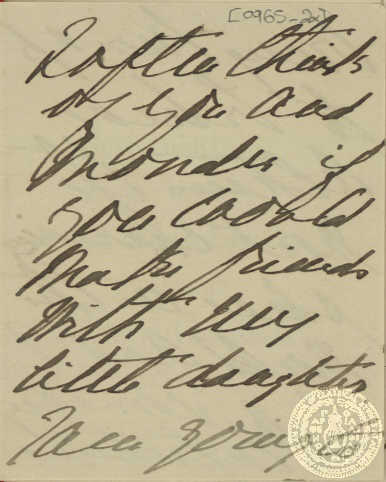 [0965-2v]
I often think
of you and
wonder if
you would
make friends
with my
little daughter
I am going